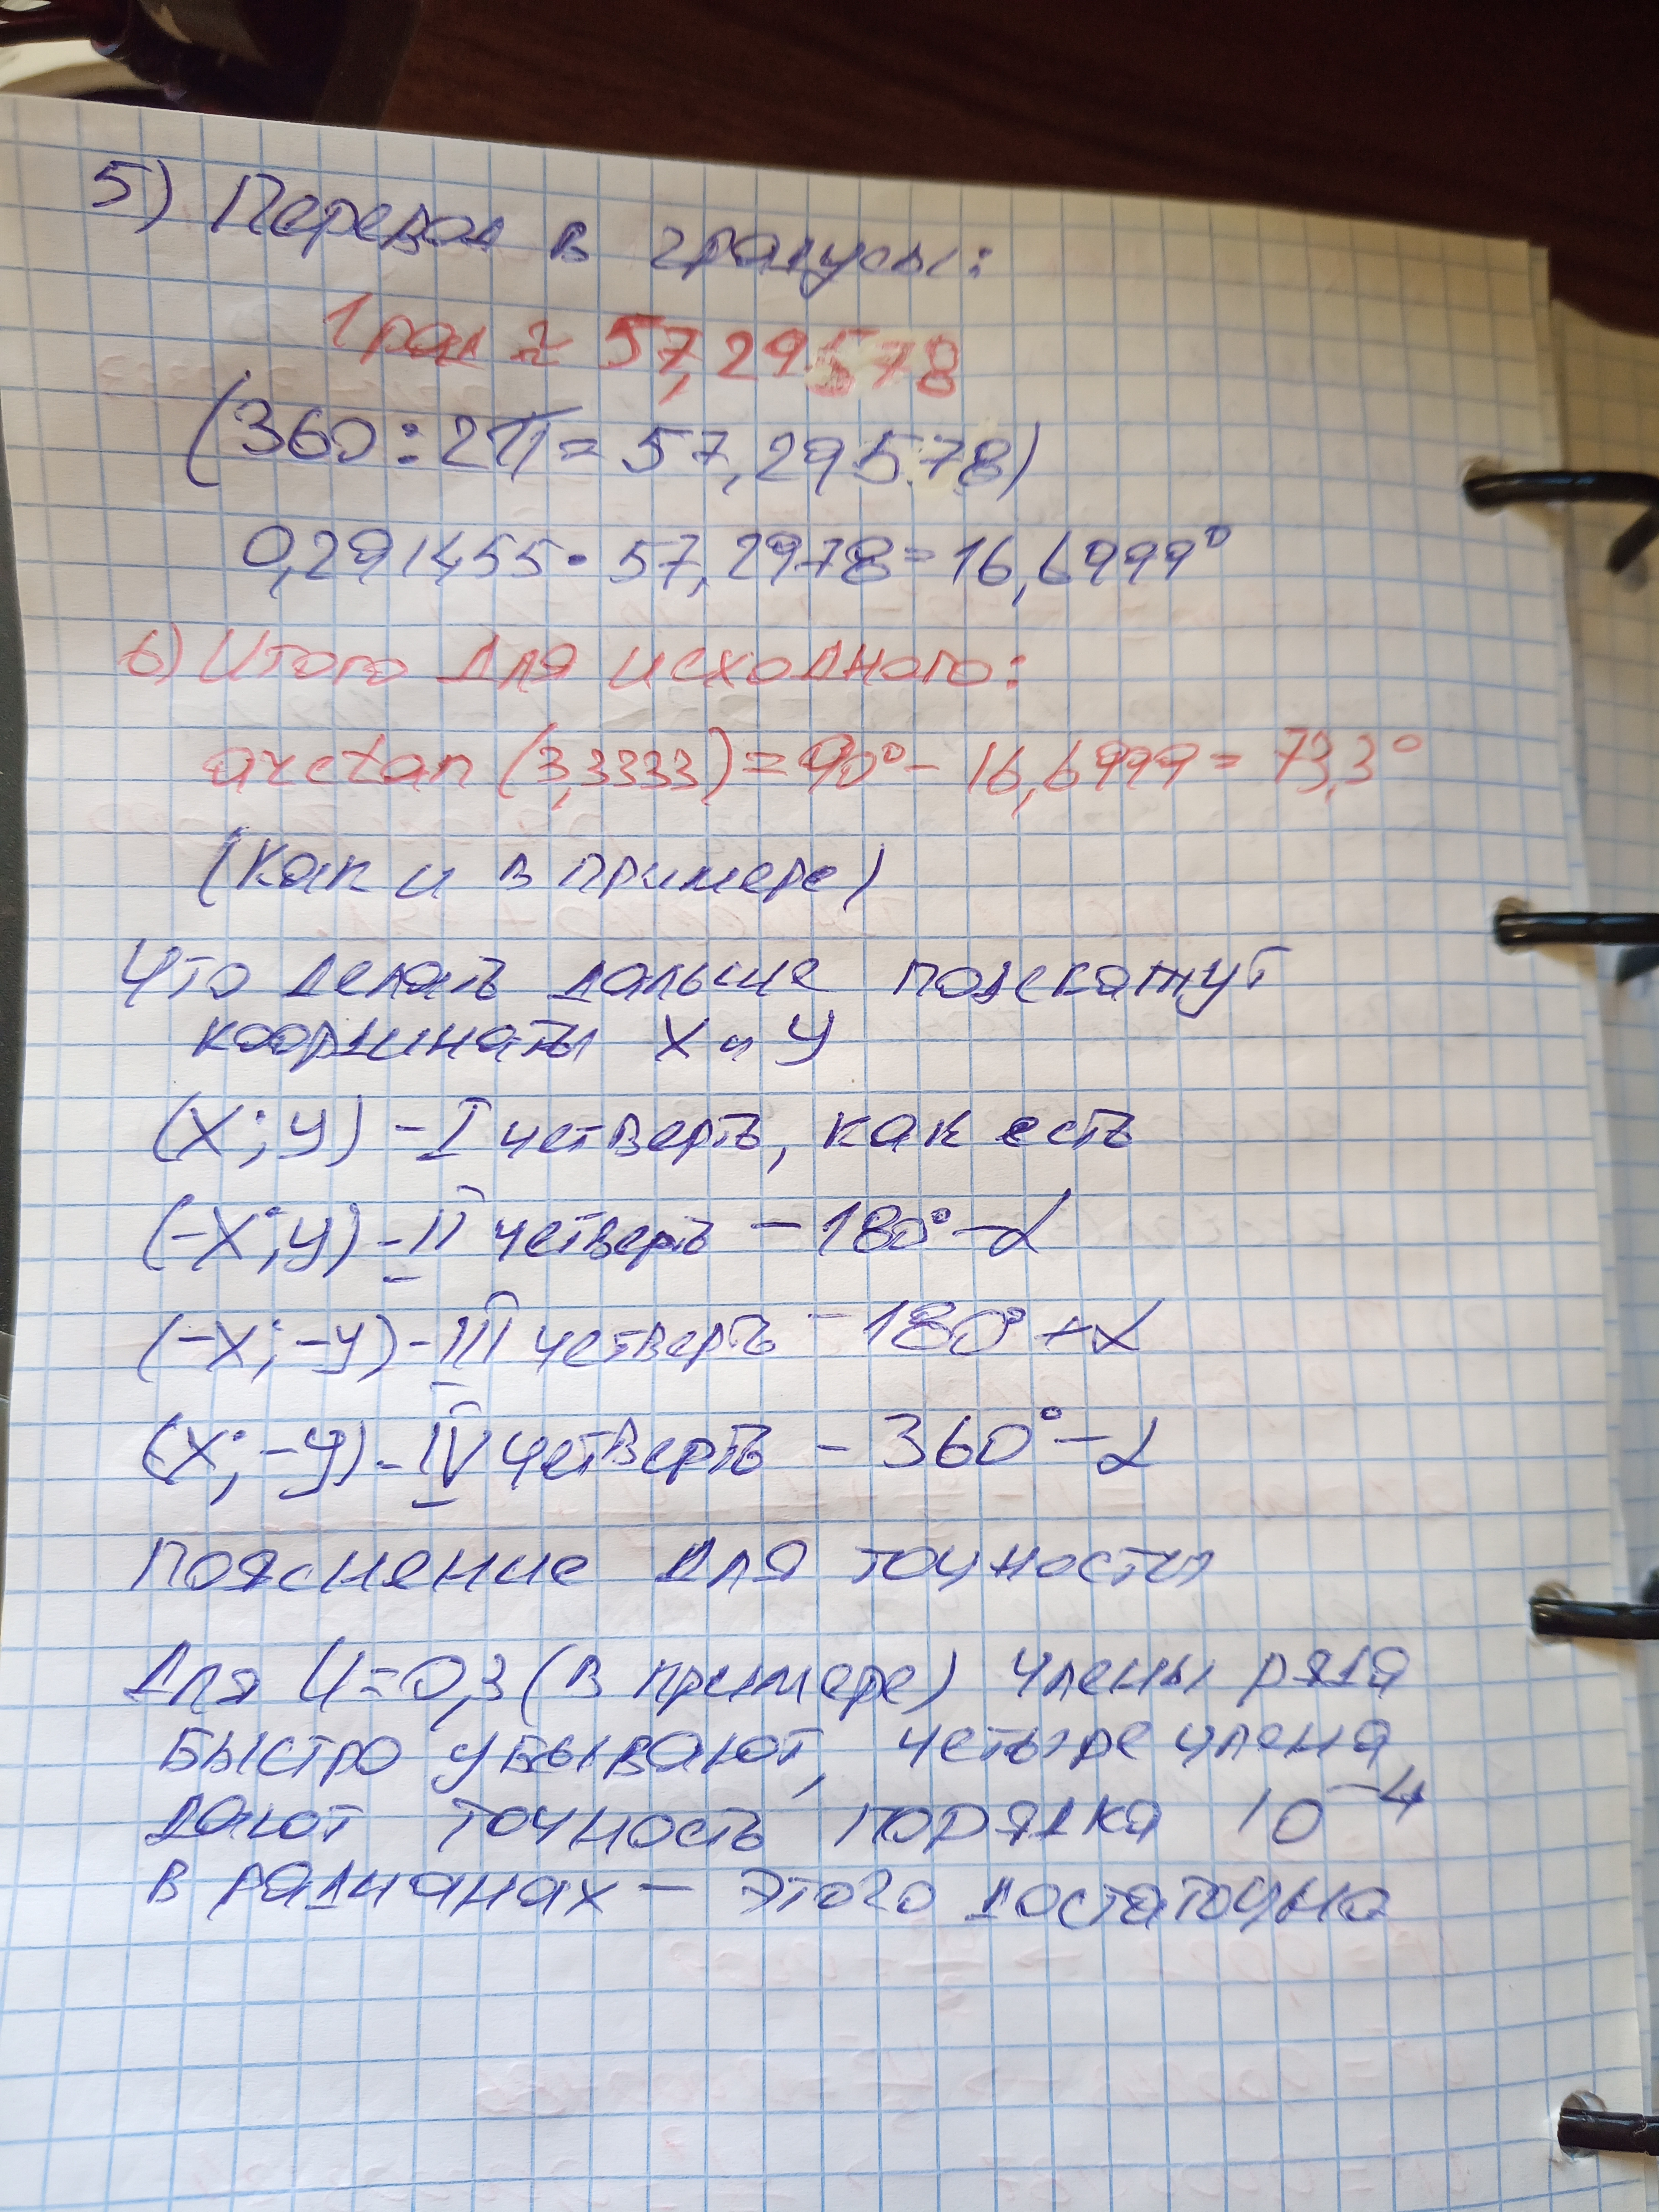 5) Перевод в градусы:
1 рад ≈ 57,29578
(360 : 2π = 57,29578)
0,291455 · 57,2978 = 16,6999°
6) Итого для исходного:
arctan (3,3333) = 90° - 16,6999 = 73,3°
(Как и в примере)
Что делать дальше подскажут
координаты X и У
(X; У) - I четверть, как есть
(-X; У) - II четверть - 180° - α
(-X; -У) - III четверть - 180° + α
(X; -У) - IV четверть - 360° - α
Пояснение для точности
Для U = 0,3 (в примере) члены ряда
быстро убывают, четыре члена
дают точность порядка 10⁻⁴
в радианах - этого достаточно